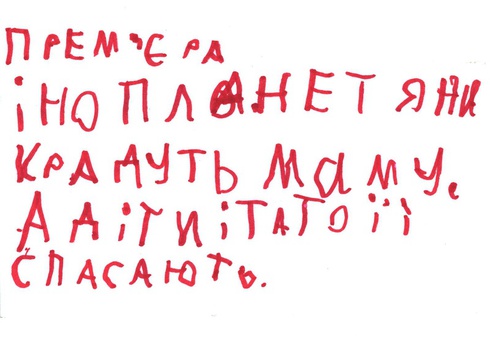 ПРЕМ'ЄРА
ІНОПЛАНЕТЯНИ
КРАДУТЬ МАМУ.
А ДІТИ І ТАТО ЇЇ
СПАСАЮТЬ.